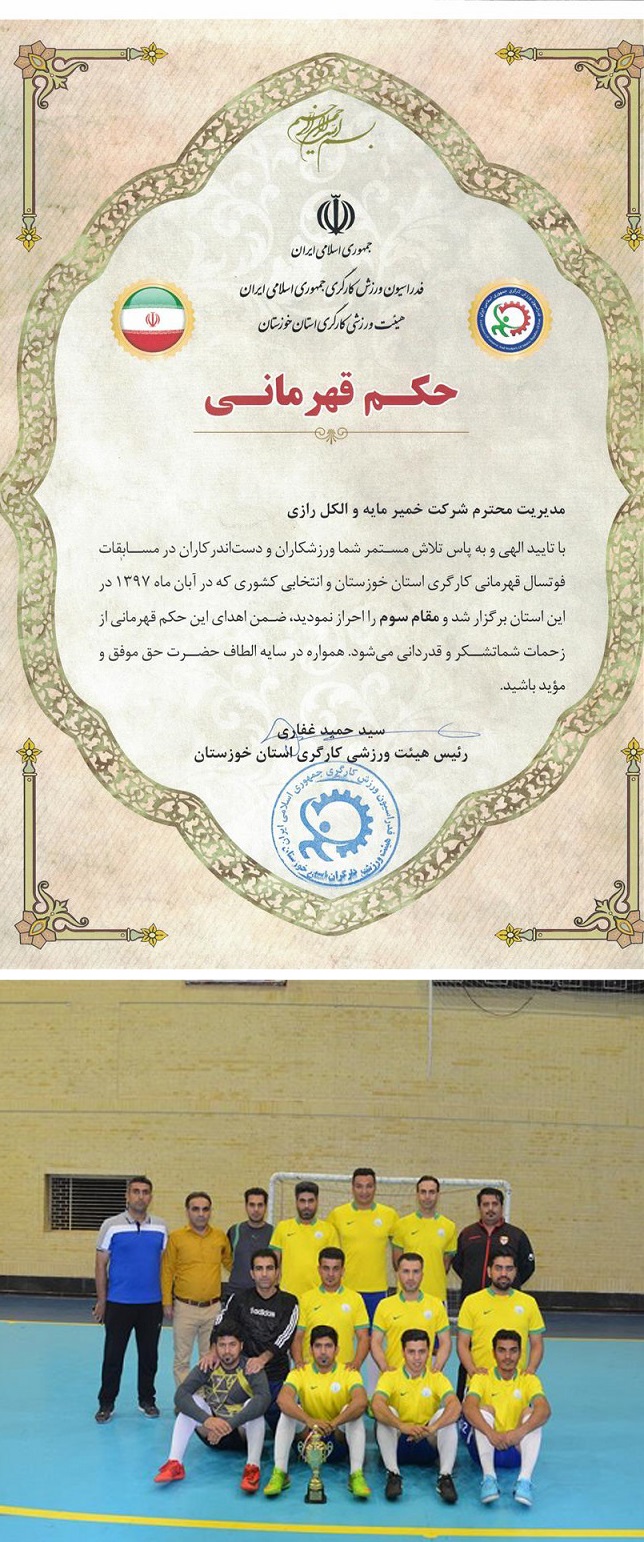 بسم الله الرحمن الرحیم
جمهوری اسلامی ایران
فدراسیون ورزش کارگری جمهوری اسلامی ایران
هیئت ورزشی کارگری استان خوزستان
حکم قهرمانی
مدیریت محترم شرکت خمیر مایه و الکل رازی
با تایید الهی و به پاس تلاش مستمر شما ورزشکاران و دست‌اندرکاران در مسابقات
فوتسال قهرمانی کارگری استان خوزستان و انتخابی کشوری که در آبان ماه ۱۳۹۷ در
این استان برگزار شد و مقام سوم را احراز نمودید، ضمن اهدای این حکم قهرمانی از
زحمات شماتشکر و قدردانی می‌شود. همواره در سایه الطاف حضرت حق موفق و
مؤید باشید.
سید حمید غفاری
رئیس هیئت ورزشی کارگری استان خوزستان
فدراسیون ورزش کارگری جمهوری اسلامی ایران
هیئت ورزشی کارگران استان خوزستان
adidas